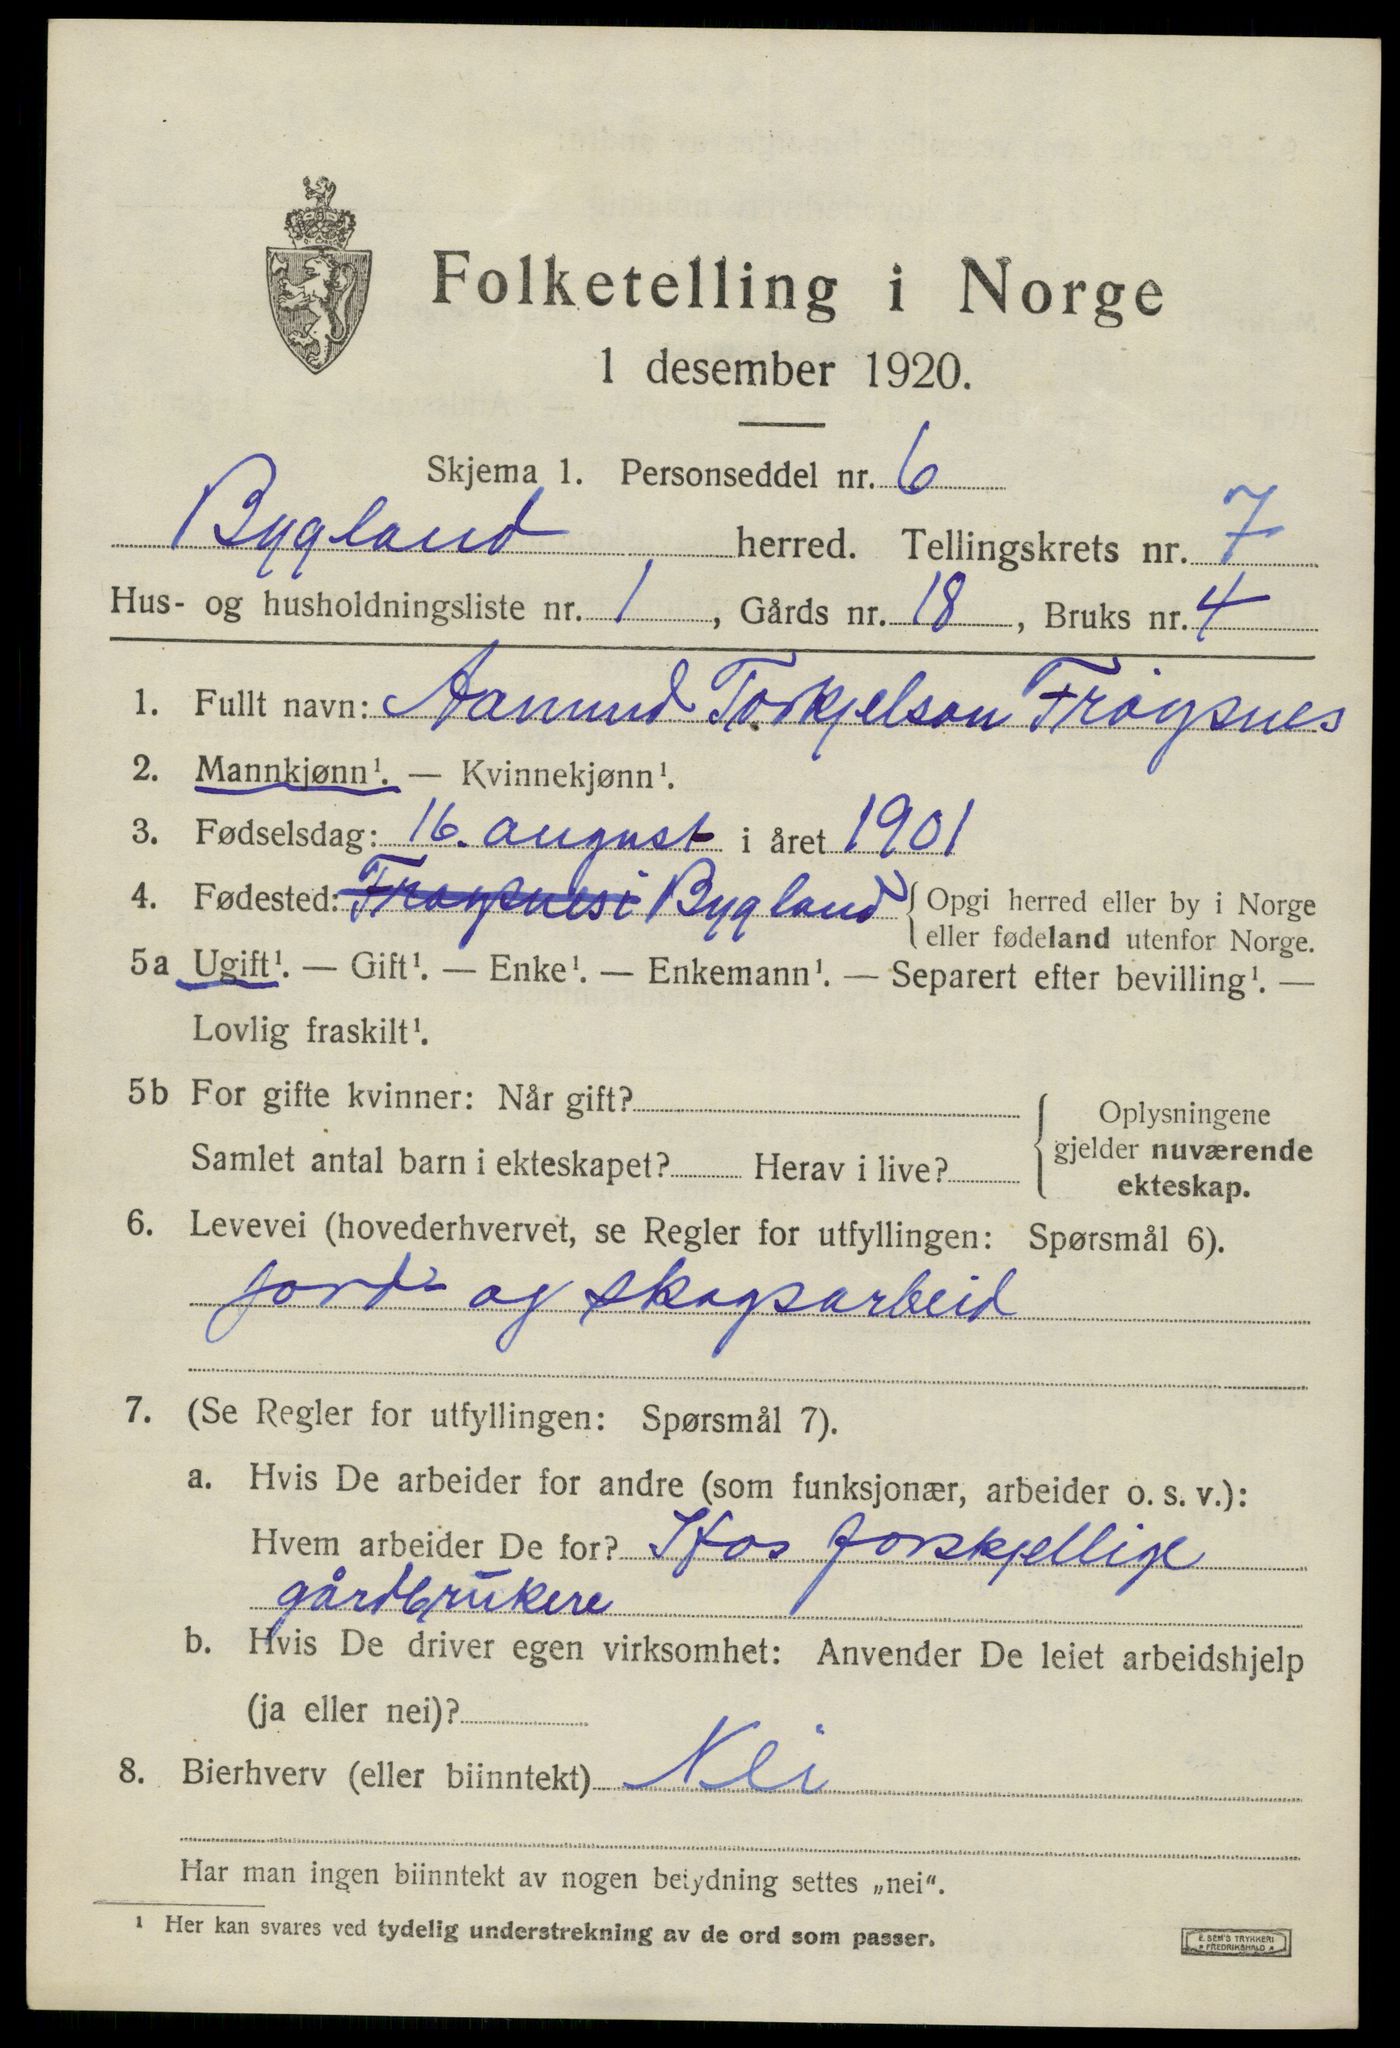 Folketelling i Norge
1 desember 1920.
Skjema 1. Personseddel nr. 6
Bygland herred. Tellingskrets nr. 7
Hus- og husholdningsliste nr. 1, Gårds nr. 18, Bruks nr. 4
1. Fullt navn: Aamund Torkjelson Frøysnes
2. Mannkjønn¹. — Kvinnekjønn¹.
3. Fødselsdag: 16. august i året 1901
4. Fødested: Frøysnes i Bygland {Opgi herred eller by i Norge
eller fødeland utenfor Norge.
5a Ugift¹. — Gift¹. — Enke¹. — Enkemann¹. — Separert efter bevilling¹. —
Lovlig fraskilt¹.
5b For gifte kvinner: Når gift?
Samlet antal barn i ekteskapet? Herav i live?
Oplysningene
gjelder nuværende
ekteskap.
6. Levevei (hovederhvervet, se Regler for utfyllingen: Spørsmål 6).
jord- og skogsarbeid
7. (Se Regler for utfyllingen: Spørsmål 7).
a. Hvis De arbeider for andre (som funksjonær, arbeider o. s. v.):
Hvem arbeider De for? forskjellige
gårdbrukere
b. Hvis De driver egen virksomhet: Anvender De leiet arbeidshjelp
(ja eller nei)?
8. Bierhverv (eller biinntekt) Nei
Har man ingen biinntekt av nogen betydning settes „nei“.
¹ Her kan svares ved tydelig understrekning av de ord som passer.
E. SEM'S TRYKKERI
FREDRIKSHALD